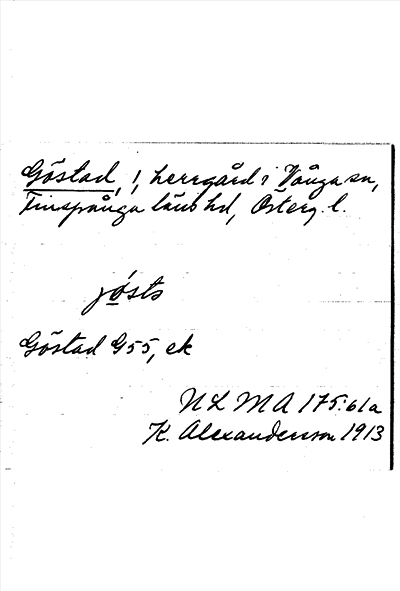 Göstad, 1, herrgård i Vånga sn,
Finspånga läns hd, Österg. l.
jösts
Göstad G55, ek
NLMA 175:61a
K. Alexanderson 1913